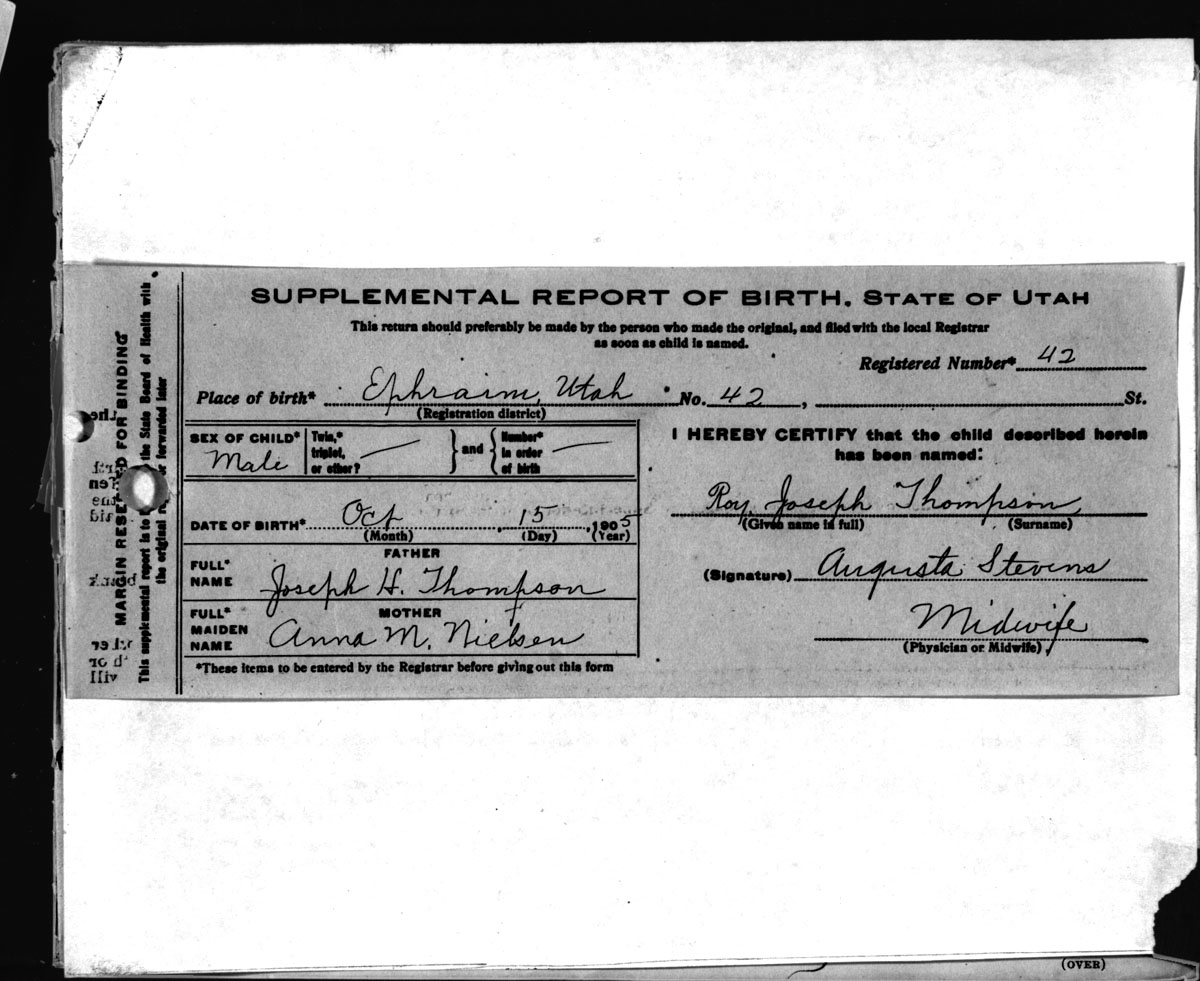 SUPPLEMENTAL REPORT OF BIRTH. STATE OF UTAH
This return should preferably be made by the person who made the original, and filed with the local Registrar
as soon as child is named.
Registered Number* 42
Place of birth* Ephraim, Utah No. 42, St.
(Registration district)
SEX OF CHILD* Male
Twin,* triplet, or other? — and Number* in order of birth —
DATE OF BIRTH* Oct, 15, 1905
(Month) (Day) (Year)
FATHER
FULL* NAME Joseph H. Thompson
MOTHER
FULL* MAIDEN NAME Anna M. Nielsen
*These items to be entered by the Registrar before giving out this form
I HEREBY CERTIFY that the child described herein
has been named:
Roy Joseph Thompson
(Given name in full) (Surname)
(Signature) Augusta Stevens
Midwife
(Physician or Midwife)
MARGIN RESERVED FOR BINDING
This supplemental report is to the State Board of Health with
the original forwarded later
(OVER)